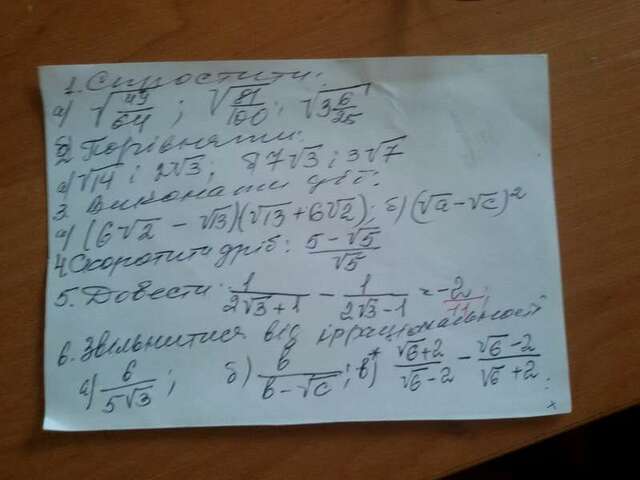 1. Спростити:
а) √(49/64) ; √(81/100) ; √(3 6/25)
2. Порівняти:
а) √14 і 2√3; б) 7√3 і 3√7
3. Виконати дії:
а) (6√2 - √13)(√13 + 6√2); б) (√a - √c)²
4. Скоротити дріб: (5 - √5)/√5
5. Довести: 1/(2√3+1) - 1/(2√3-1) = -2/11;
6. Звільнитися від ірраціональності
а) 6/(5√3); б) в/(в-√c); в)* (√6+2)/(√6-2) - (√6-2)/(√6+2)